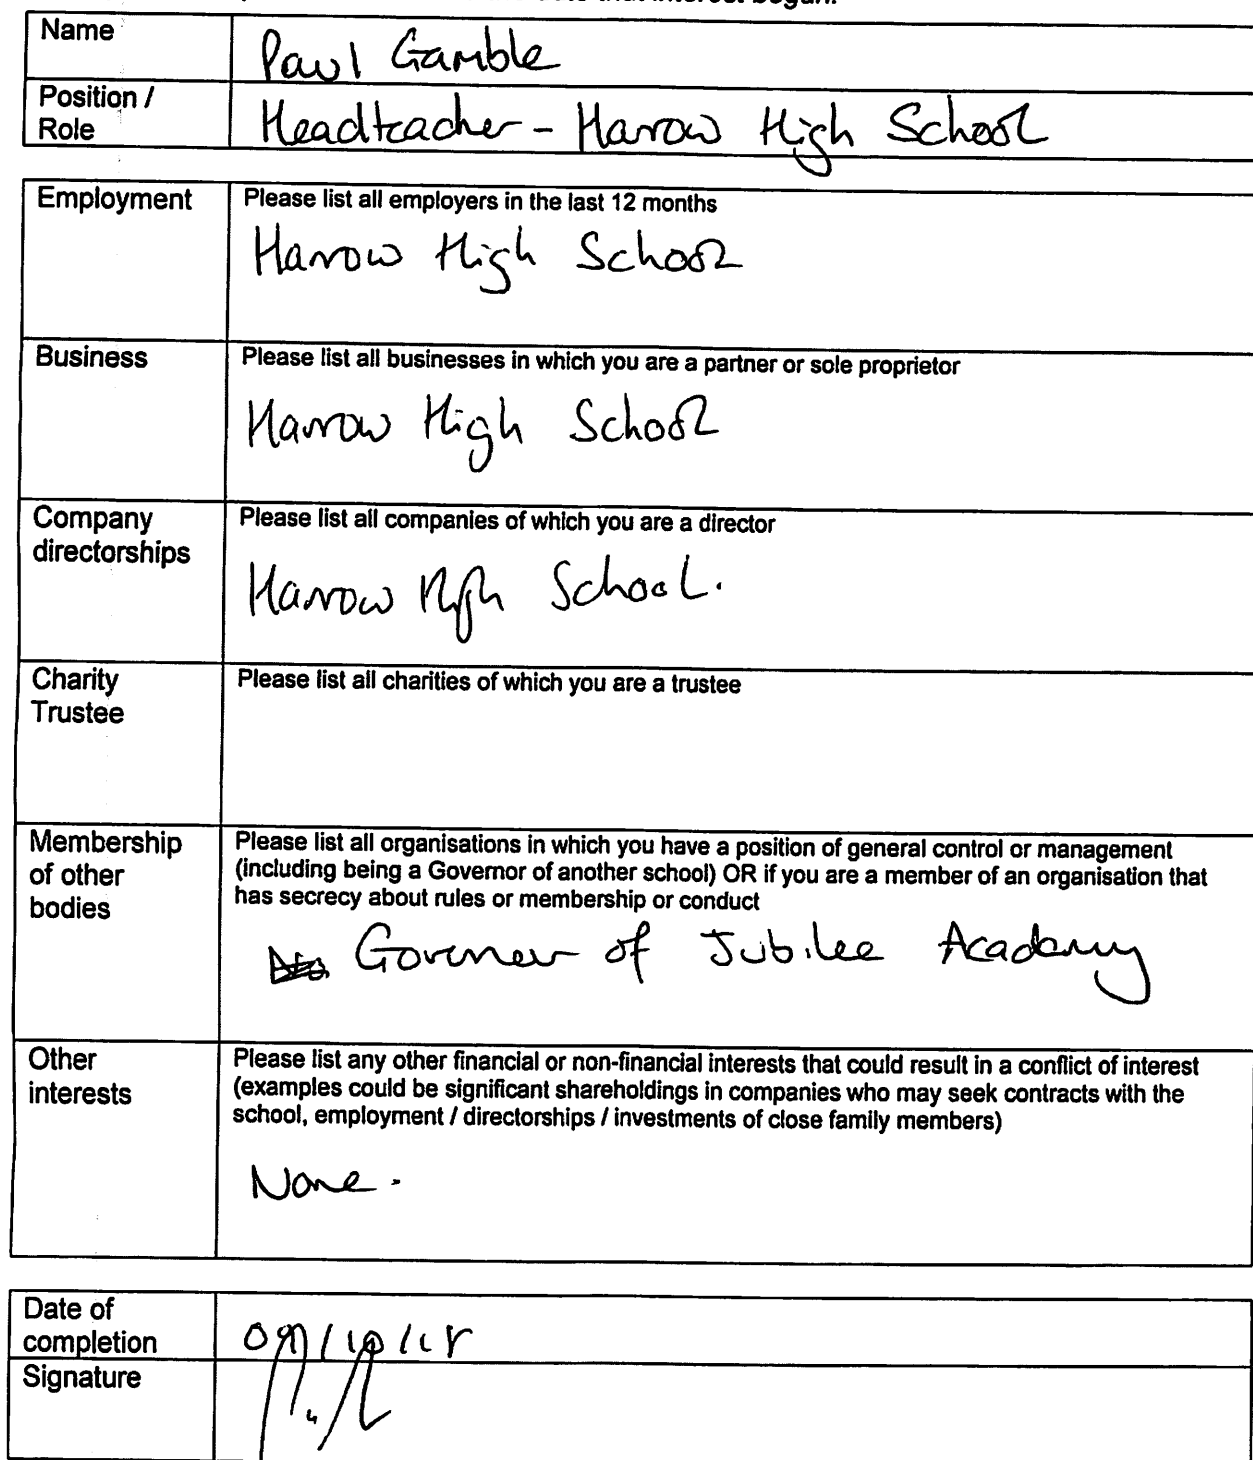 that interest began.
Name
Paul Gamble
Position /
Role
Headteacher - Harrow High School
Employment
Please list all employers in the last 12 months
Harrow High School
Business
Please list all businesses in which you are a partner or sole proprietor
Harrow High School
Company
directorships
Please list all companies of which you are a director
Harrow High School.
Charity
Trustee
Please list all charities of which you are a trustee
Membership
of other
bodies
Please list all organisations in which you have a position of general control or management
(including being a Governor of another school) OR if you are a member of an organisation that
has secrecy about rules or membership or conduct
Governer of Jubilee Academy
Other
interests
Please list any other financial or non-financial interests that could result in a conflict of interest
(examples could be significant shareholdings in companies who may seek contracts with the
school, employment / directorships / investments of close family members)
None.
Date of
completion
Signature